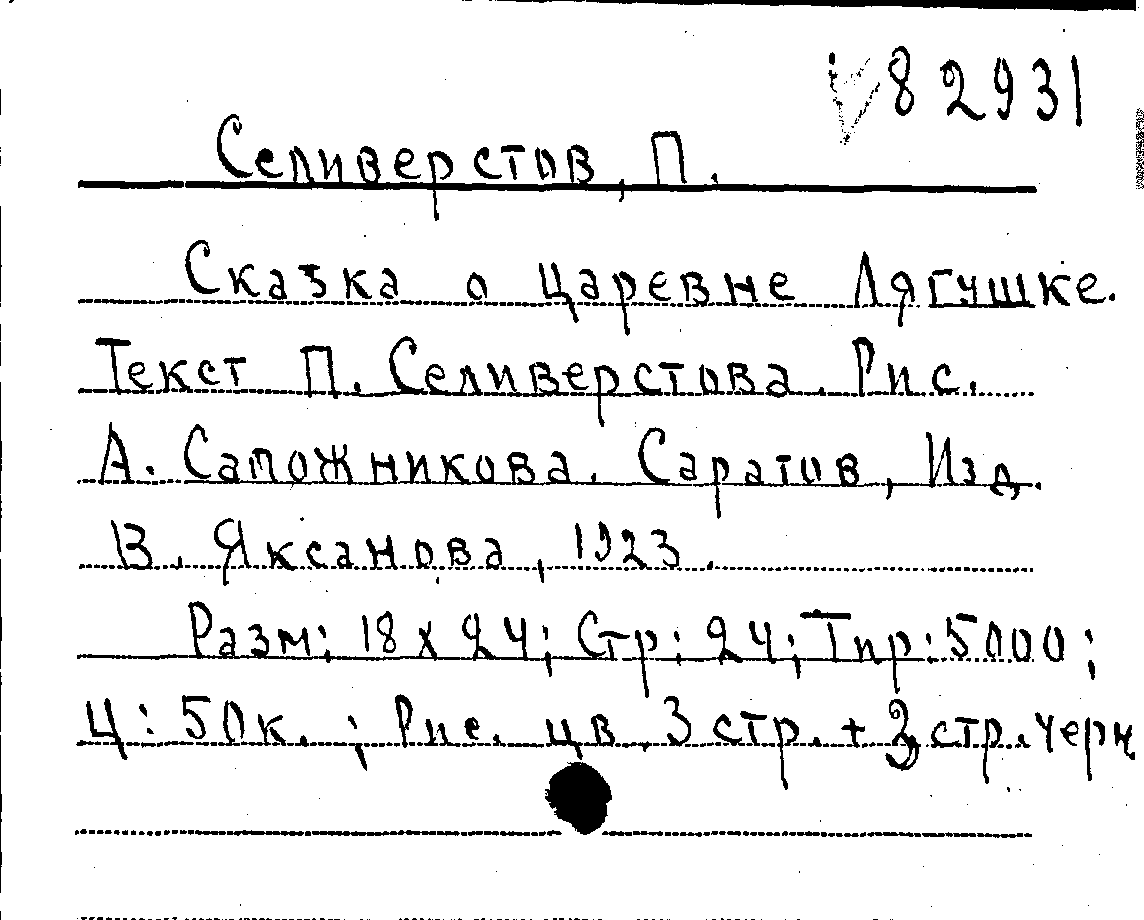 82931
Селиверстов, П.
Сказка о царевне Лягушке.
Текст П. Селиверстова. Рис.
А. Сапожникова. Саратов, Изд.
В. Яксанова, 1923.
Разм: 18 х 24; Стр: 24; Тир: 5000;
Ц: 50к. ; Рис. цв. 3 стр. + 3 стр. черн